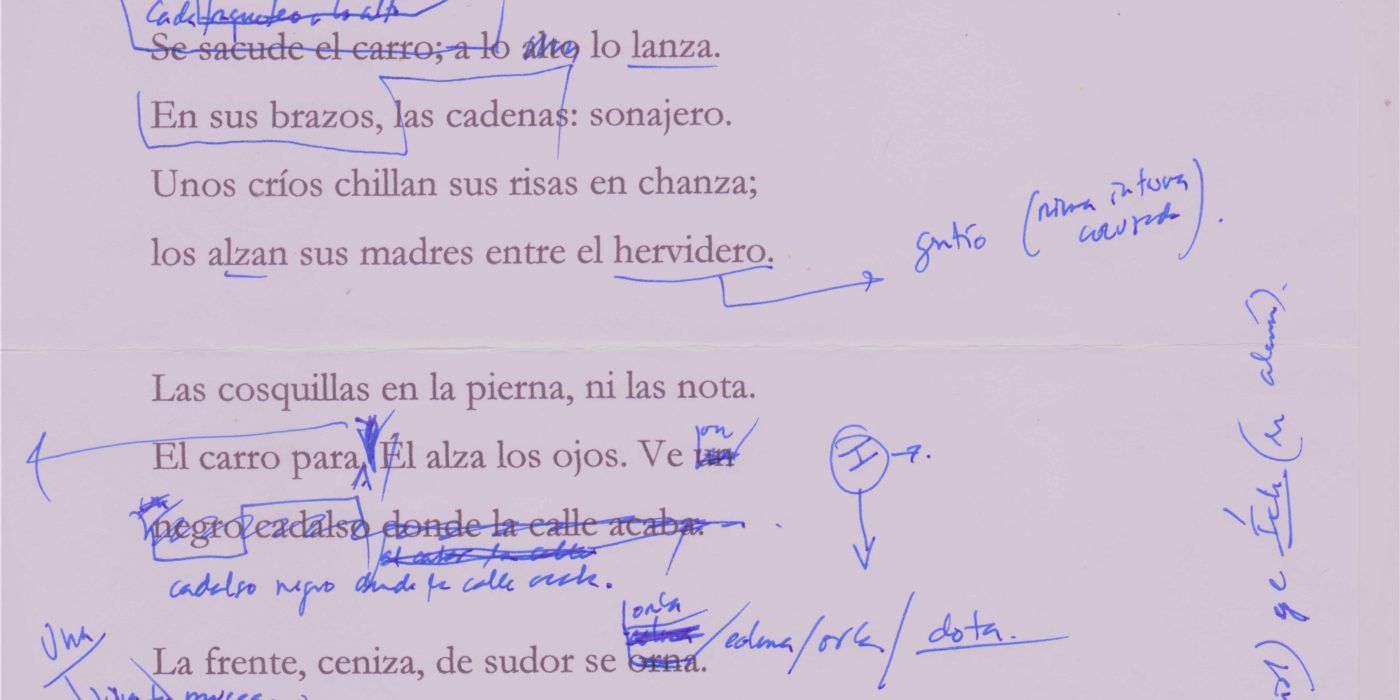 Se sacude el carro; a lo alto lo lanza.
En sus brazos, las cadenas: sonajero.
Unos críos chillan sus risas en chanza;
los alzan sus madres entre el hervidero.
gentío (rima interna
cruzada).
Las cosquillas en la pierna, ni las nota.
El carro para. Él alza los ojos. Ve un
negro cadalso donde la calle acaba.
cadalso negro donde la calle acaba.
orla
La frente, ceniza, de sudor se orna. / orla / dota.
Una
ge Ich (en alemán).